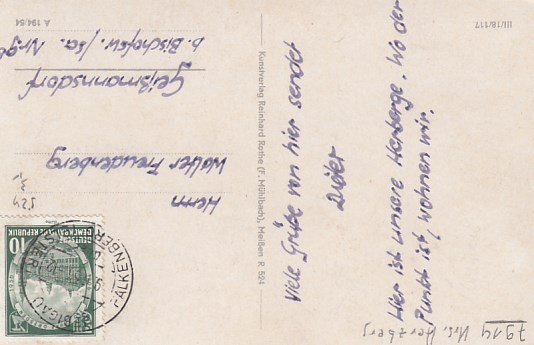 III/18/117
A 194/54
Hier ist unsere Herberge. Wo der
Punkt ist, wohnen wir.
Viele Grüße von hier sendet
Dieter
Kunstverlag Reinhard Rothe (F. Mühlbach), Meißen R 524
Herrn
Walter Freudenberg
Geißmannsdorf
b. Bischofsw./Sa. Nr. 96
DEUTSCHE
DEMOKRATISCHE REPUBLIK
10
FALKENBERG
524
3,-
7914 Krs. Herzberg